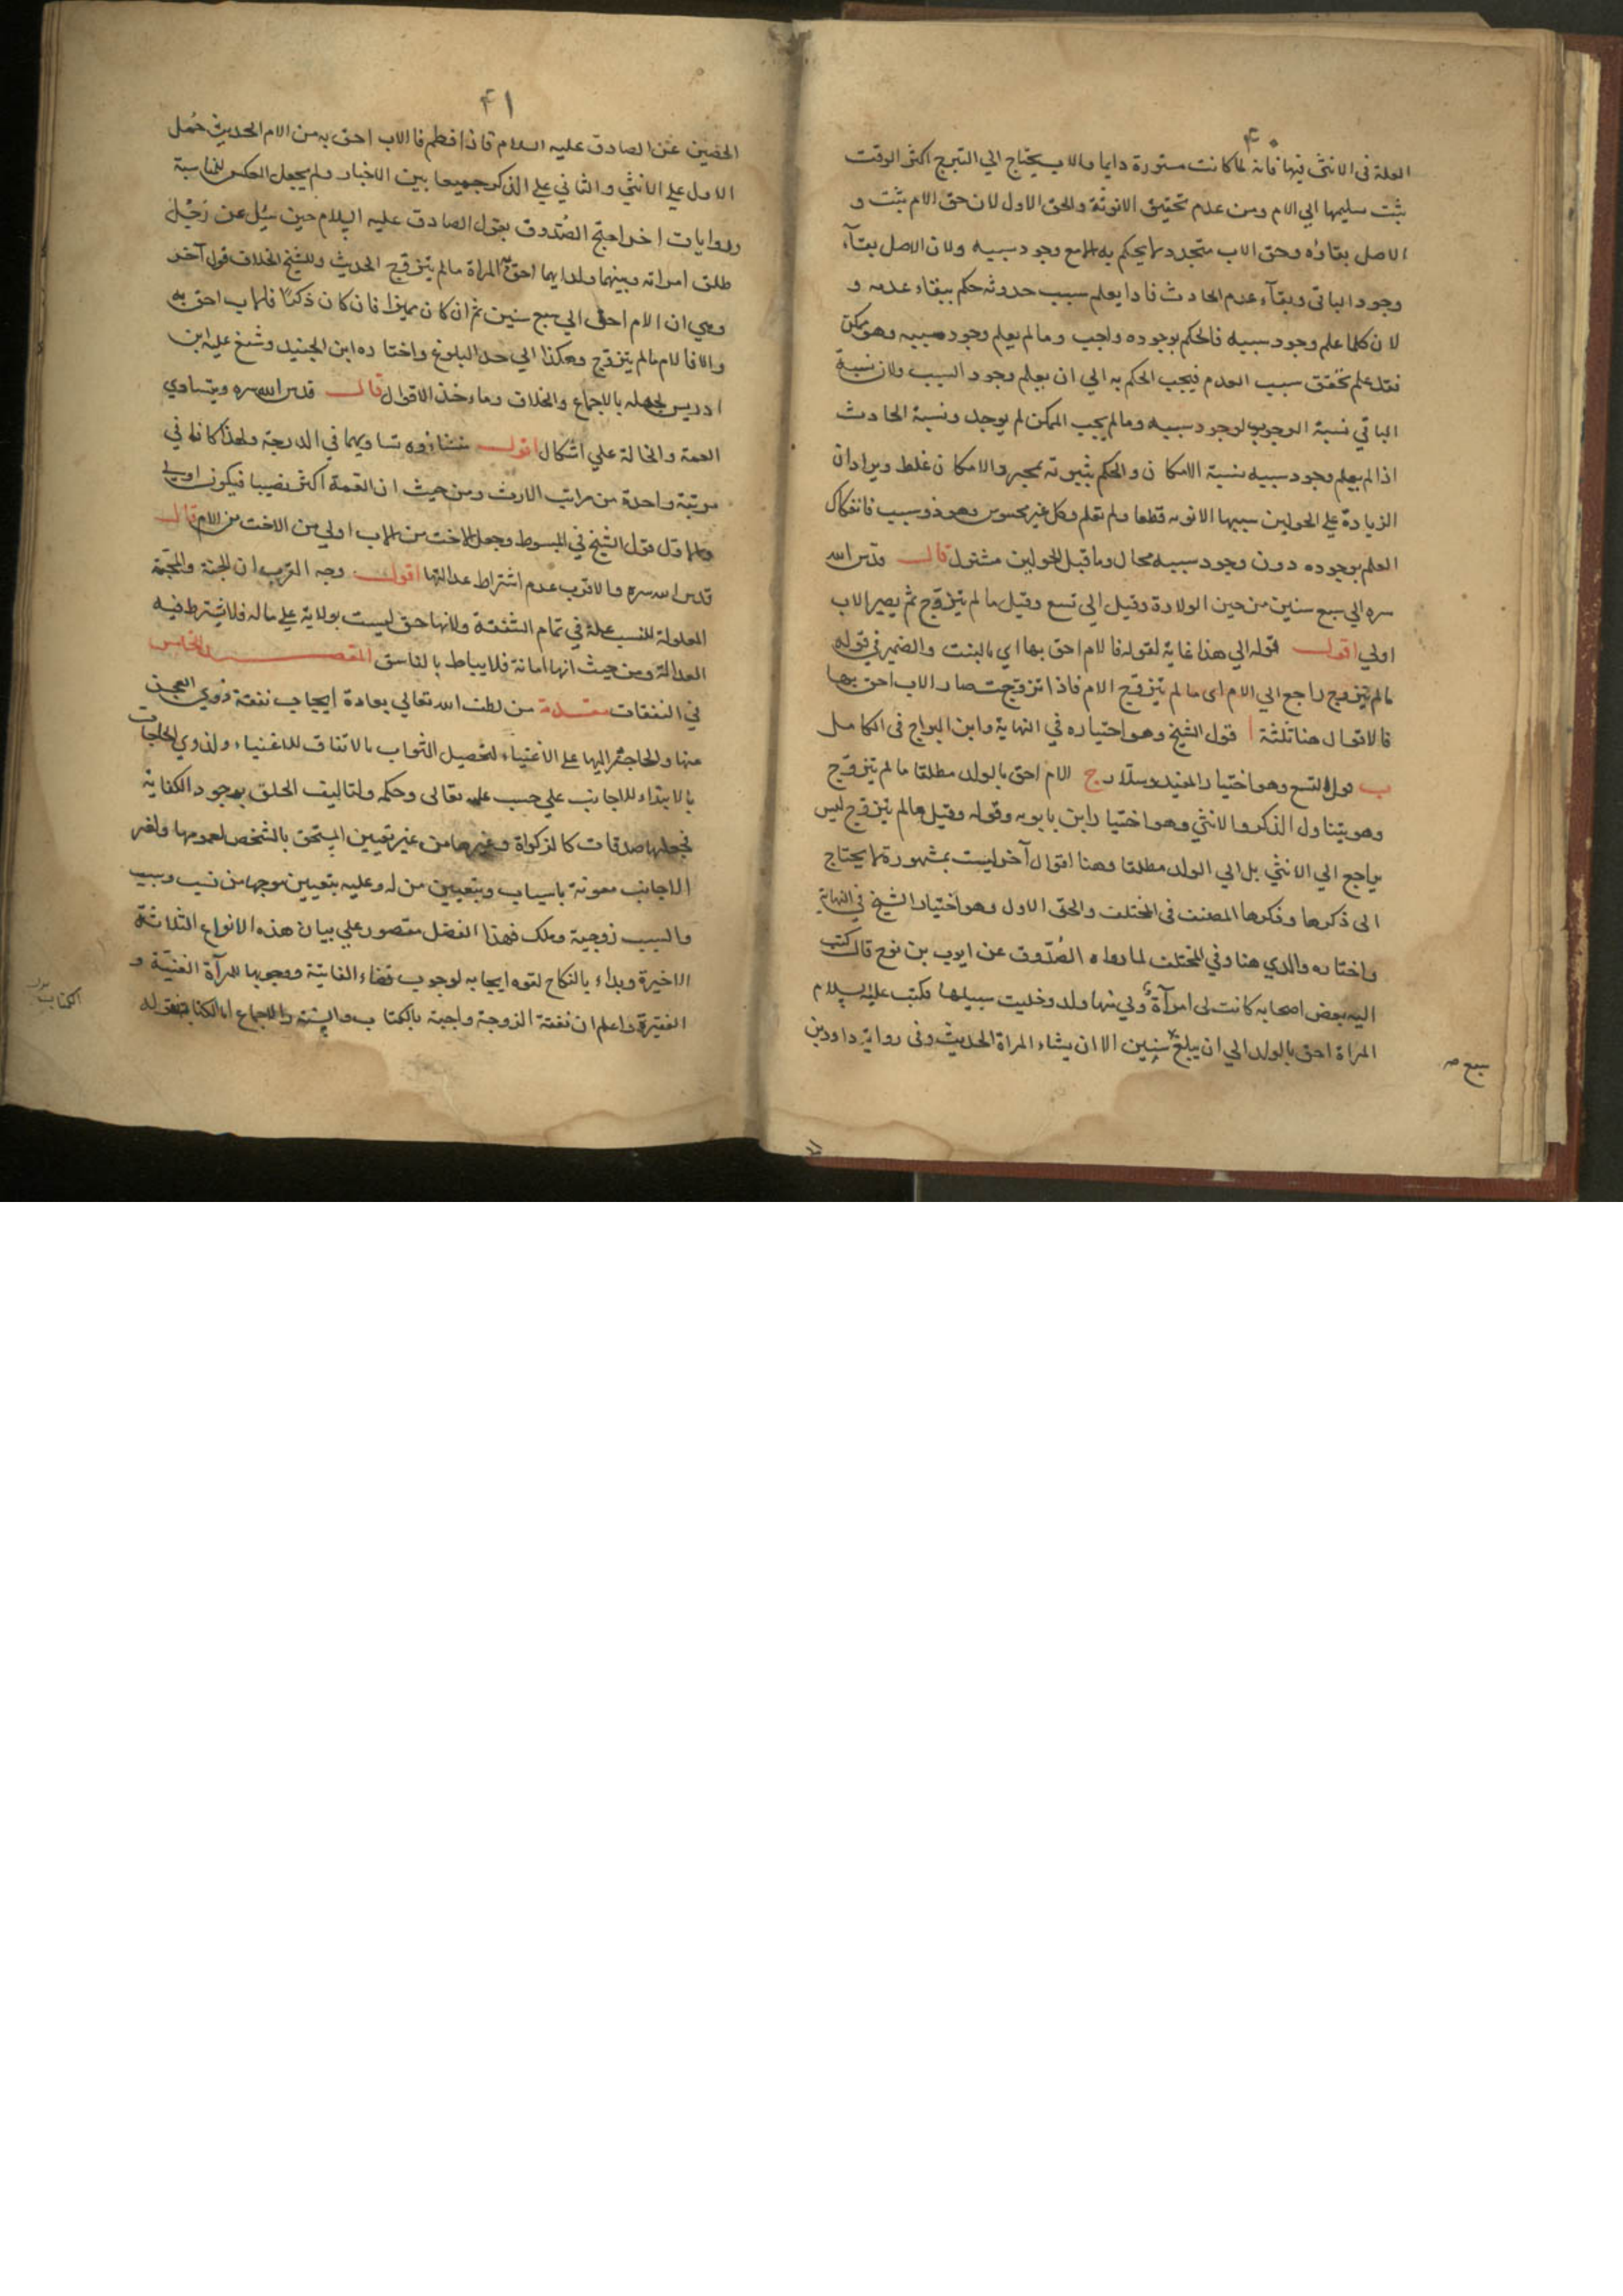 ٤٠
العلة فى الانثى فيها فانه لما كانت مستورة دايما والاب يحتاج الي التبرج اكثر الوقت
يثبت تسليمها الي الام ومن عدم تحقيق الانوثة والحق الاول لان حق الام يثبت و
الاصل بقاؤه وحق الاب متجدد لا يحكم به الا مع وجود سببه ولان الاصل بقآء
وجود الباقى وبقآء عدم الحادث فاذا يعلم سبب حدوثه حكم ببقاء عدمه و
لان كلما علم وجود سببه فالحكم بوجوده واجب وما لم يعلم وجود سببه وهو ممكن
فقد علم تحقق سبب العدم فيجب الحكم به الي ان يعلم وجود السبب ولان نسبة
الباقي نسبة الوجوب لوجود سببه وما لم يجب الممكن لم يوجد ونسبة الحادث
اذا لم يعلم وجود سببه نسبة الامكان والحكم بثبوته بمجرد الامكان غلط ويراد ان
الزيادة علي الحولين سببها الانوثة قطعا ولم تعلم وكل غير محسوس وهو ذو سبب فانفكاك
العلم بوجوده دون وجود سببه محال وما قبل الحولين مشترك قال قدس الله
سره الي سبع سنين من حين الولادة وقيل الي تسع وقيل ما لم يتزوج ثم يصير الاب
اولي اقول قوله الي هذا غاية لقوله فالام احق بها اي بالبنت والضمير في قوله
ما لم يتزوج راجع الي الام اى ما لم يتزوج الام فاذا تزوجت صار الاب احق بها
فالاقوال هنا ثلثة ا قول الشيخ وهو اختياره في النهاية وابن البراج فى الكامل
ب قول التسع وهو اختيار المفيد وسلار ج الام احق بالولد مطلقا ما لم يتزوج
وهو يتناول الذكر والانثي وهو اختيار ابن بابويه وقوله وقيل ما لم يتزوج ليس
براجع الي الانثي بل الي الولد مطلقا وهنا اقوال آخر ليست بمشهورة لا يحتاج
الى ذكرها وذكرها المصنف فى المختلف والحق الاول وهو اختيار الشيخ في النهاية
واختاره والدي هنا وفي المختلف لما رواه الصدوق عن ايوب بن نوح قال كتب
اليه بعض اصحابه كانت لى امرآة ولي منها ولد وخليت سبيلها فكتب عليه السلام
المراة احق بالولد الي ان يبلغ سنين الا ان يشاء المراة الحديث وفى رواية داود بن
سبع صح
٤١
الحصين عن الصادق عليه السلام فاذا فطم فالاب احق به من الام الحديث حمل
الاول علي الانثي والثاني علي الذكر جمعا بين الاخبار ولم يجعل العكس للمناسبة
وروايات اخر احتج الصدوق بقول الصادق عليه السلام حين سئل عن رجل
طلق امراته وبينهما ولد ايهما احق به المراة ما لم يتزوج الحديث وللشيخ في الخلاف قول آخر
وهي ان الام احق الي سبع سنين ثم ان كان مميزا فان كان ذكرا فالاب احق به
والا فالام ما لم يتزوج وهكذا الي حد البلوغ واختاره ابن الجنيد وشنع عليه ابن
ادريس لجهله بالاجماع والخلاف وماخذ الاقوال قال قدس الله سره ويتساوي
العمة والخالة علي اشكال اقول منشاؤه تساويهما في الدرجة ولهذا كانا في
مرتبة واحدة من مراتب الارث ومن حيث ان العمة اكثر نصيبا فيكون اولي
ولما نقل قول الشيخ في المبسوط وجعل الاخت من الاب اولي من الاخت من الام قال
قدس الله سره والاقرب عدم اشتراط عدالتها اقول وجه القرب ان المحبة
المعلولة للنسب علة في تمام الشفقة ولانها حق ليست بولاية علي ماله فلا يشترط فيه
العدالة ومن حيث انها امانة فلا يناط بالفاسق المقصد الخامس
في النفقات مقدمة من لطف الله تعالي بعباده ايجاب نفقة ذوي العجز
عنها والحاجة اليها علي الاغنياء لتحصيل الثواب بالانفاق للاغنياء ولذوي الحاجات
بالابتداء للاجانب علي حسب علمه تعالى وحكمه ولتاليف الخلق بوجود الكفاية
فجعلها صدقات كالزكواة وغيرها من غير تعيين المستحق بالشخص لعمومها ولغير
الاجانب معونة باسباب وبتعيين من له وعليه بتعيين موجبها من نسب وسبب
والسبب زوجية وملك فهذا الفصل مقصور علي بيان هذه الانواع الثلاثة
الاخيرة وبداء بالنكاح لقوة ايجابه لوجوب قضاء الفايتة ووجوبها للمرآة الغنية و
الفقيرة واعلم ان نفقة الزوجة واجبة بالكتاب والسنة والاجماع اما الكتاب فقوله